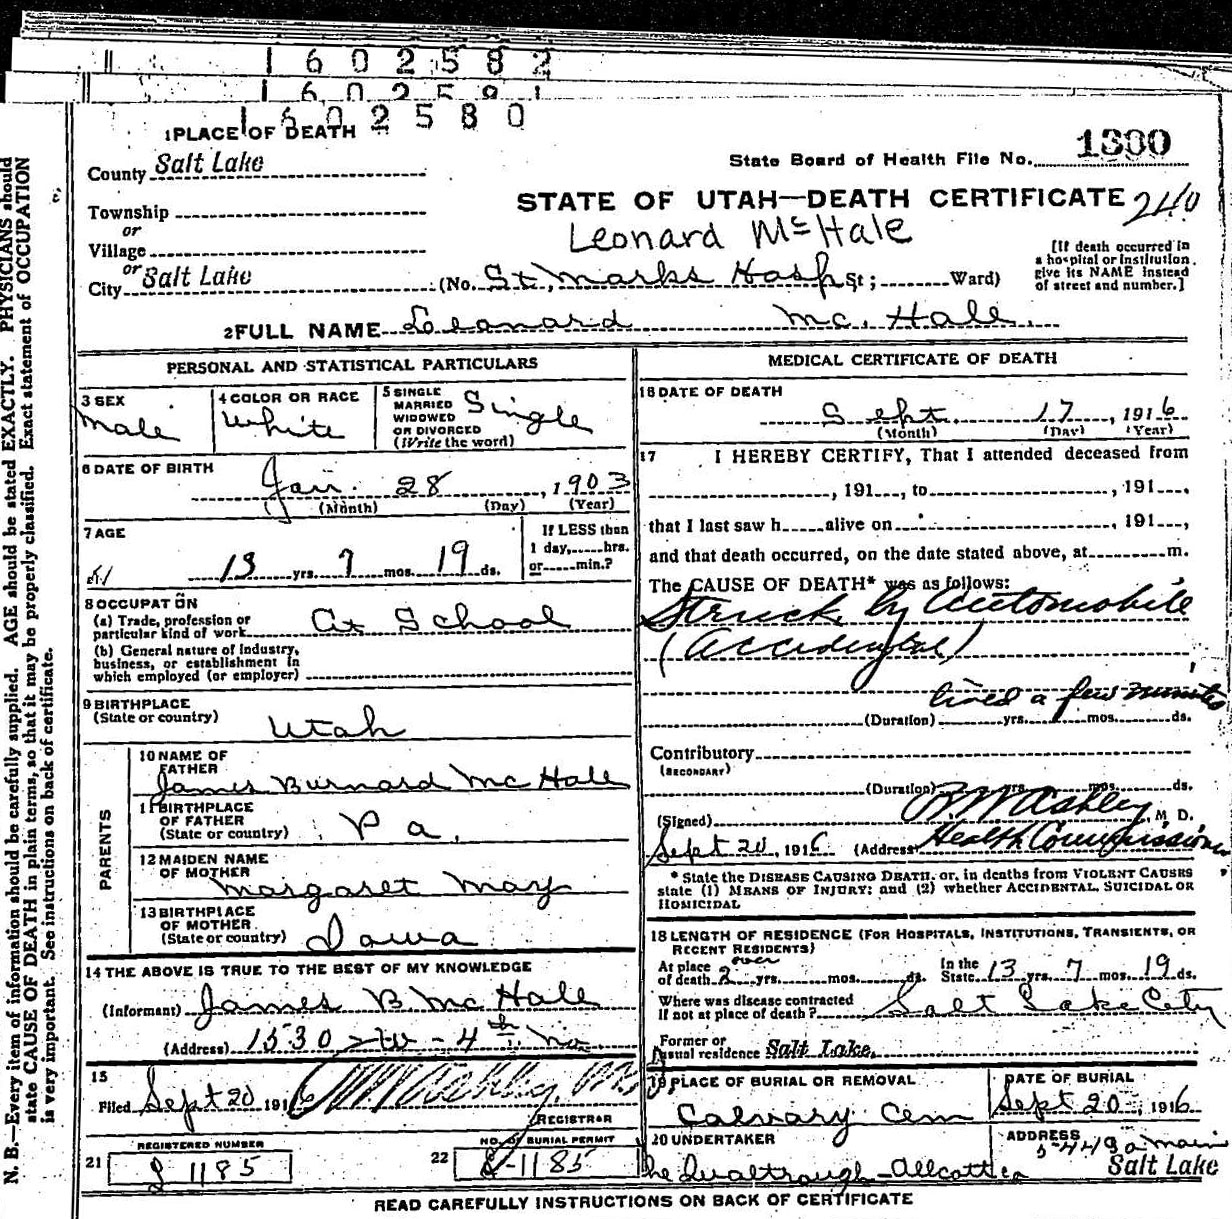 1602582
1602581
1602580
1 PLACE OF DEATH
County Salt Lake
State Board of Health File No. 1300
STATE OF UTAH—DEATH CERTIFICATE 240
Township
or
Village
or
City Salt Lake
Leonard McHale
(No. St, Marks Hosp St; Ward)
[If death occurred in
a hospital or institution,
give its NAME instead
of street and number.]
2 FULL NAME Leonard Mc. Hale.
PERSONAL AND STATISTICAL PARTICULARS
3 SEX
Male
4 COLOR OR RACE
White
5 SINGLE
MARRIED
WIDOWED
OR DIVORCED
(Write the word)
Single
6 DATE OF BIRTH
Jan. 28, 1903
(Month) (Day) (Year)
7 AGE
13 yrs. 7 mos. 19 ds.
If LESS than
1 day, hrs.
or min.?
8 OCCUPATION
(a) Trade, profession or
particular kind of work At School
(b) General nature of industry,
business, or establishment in
which employed (or employer)
9 BIRTHPLACE
(State or country) Utah
PARENTS
10 NAME OF
FATHER
James Burnard Mc Hale
11 BIRTHPLACE
OF FATHER
(State or country) Pa.
12 MAIDEN NAME
OF MOTHER
Margaret May
13 BIRTHPLACE
OF MOTHER
(State or country) Iowa
14 THE ABOVE IS TRUE TO THE BEST OF MY KNOWLEDGE
(Informant) James B Mc Hale
(Address) 1530 W - 4th No
15
Filed Sept 20 1916
REGISTRAR
REGISTERED NUMBER
21 1185
NO. OF BURIAL PERMIT
22 1185
MEDICAL CERTIFICATE OF DEATH
16 DATE OF DEATH
Sept. 17, 1916
(Month) (Day) (Year)
17 I HEREBY CERTIFY, That I attended deceased from
, 191 , to , 191 ,
that I last saw h alive on , 191 ,
and that death occurred, on the date stated above, at m.
The CAUSE OF DEATH* was as follows:
Struck by Automobile
(Accidental)
lived a few minutes
(Duration) yrs. mos. ds.
Contributory
(SECONDARY)
(Duration) yrs. mos. ds.
(Signed) Ashley, M D.
Sept 20, 1916 (Address Health Commissioner
* State the DISEASE CAUSING DEATH, or, in deaths from VIOLENT CAUSES
state (1) MEANS OF INJURY; and (2) whether ACCIDENTAL, SUICIDAL OR
HOMICIDAL
18 LENGTH OF RESIDENCE (FOR HOSPITALS, INSTITUTIONS, TRANSIENTS, OR
RECENT RESIDENTS)
At place
of death over 2 yrs. mos. ds. In the
State 13 yrs. 7 mos. 19 ds.
Where was disease contracted
If not at place of death? Salt Lake City
Former or
usual residence Salt Lake.
19 PLACE OF BURIAL OR REMOVAL
Calvary Cem
DATE OF BURIAL
Sept 20, 1916
20 UNDERTAKER
ADDRESS
Main
Salt Lake
READ CAREFULLY INSTRUCTIONS ON BACK OF CERTIFICATE
N. B.—Every item of information should be carefully supplied. AGE should be stated EXACTLY. PHYSICIANS should
state CAUSE OF DEATH in plain terms, so that it may be properly classified. Exact statement of OCCUPATION
is very important. See instructions on back of certificate.